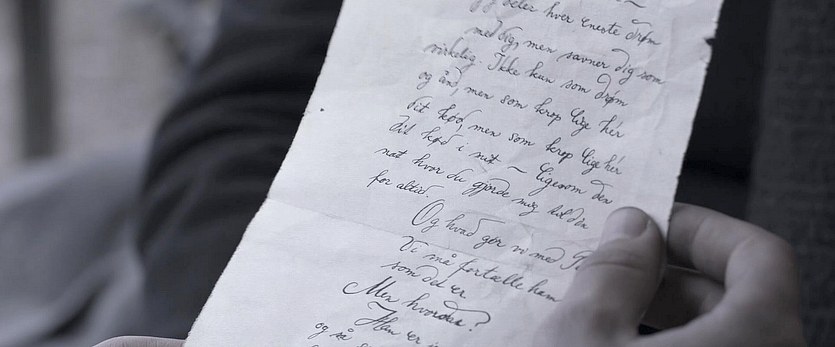 deler hver eneste drøm
med dig, men savner dig som
virkelig. Ikke kun som drøm
og ånd, men som krop lige hér
dit kød, men som krop lige hér
dit kød i mit ~ ligesom den
nat hvor du gjorde mig til din
for altid.
Og hvad gør vi med
Vi må fortælle ham
som det er
Men hvordan?
Han er
og så